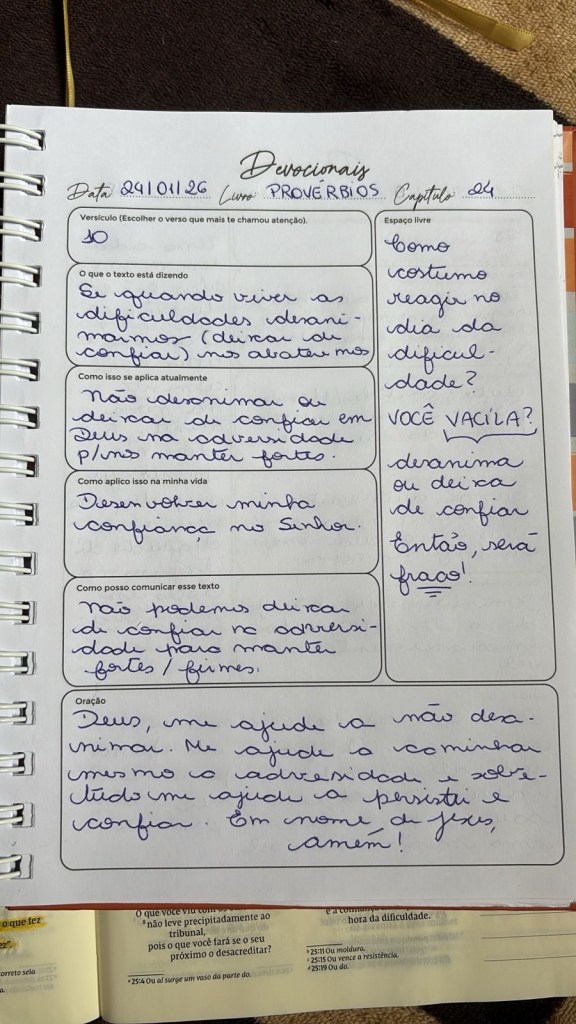 Devocionais
Data 24/01/26 Livro PROVÉRBIOS Capítulo 24
Versículo (Escolher o verso que mais te chamou atenção).
10
O que o texto está dizendo
Se quando viver as
dificuldades desani-
marmos (deixar de
confiar) nos abateremos
Como isso se aplica atualmente
Não desanimar ou
deixar de confiar em
Deus na adversidade
p/ nos manter fortes.
Como aplico isso na minha vida
Desenvolver minha
confiança no Senhor.
Como posso comunicar esse texto
Não podemos deixar
de confiar na adversi-
dade para manter
fortes / firmes.
Espaço livre
Como
costumo
reagir no
dia da
dificul-
dade?
VOCÊ VACILA?
desanima
ou deixa
de confiar
Então, será
fraco!
Oração
Deus, me ajude a não desa-
nimar. Me ajude a caminhar
mesmo a adversidade e sobre-
tudo me ajude a persistir e
confiar. Em nome de Jesus,
amém!
o que fez
O que você viu com os
⁸não leve precipitadamente ao
tribunal,
pois o que você fará se o seu
próximo o desacreditar?
ᵃ 25:4 Ou aí surge um vaso da parte do.
hora da dificuldade.
25:11 Ou moldura.
25:15 Ou vence a resistência.
25:19 Ou da.